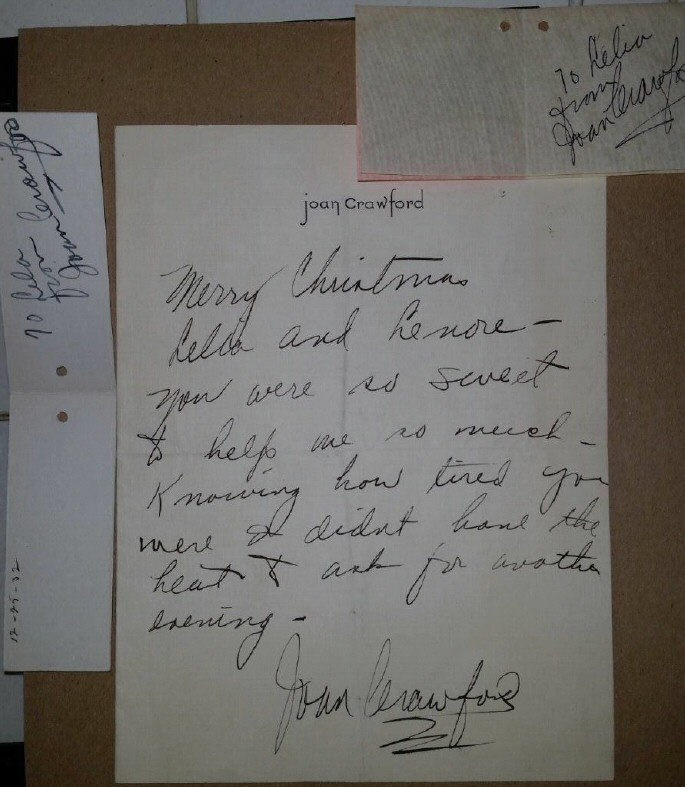 To Lelia
from
Joan Crawford
To Lela
from
Joan Crawford
12-25-32
joan crawford
Merry Christmas
Lelia and Lenore –
you were so sweet
to help me so much –
Knowing how tired you
were I didnt have the
heart to ask for another
evening –
Joan Crawford